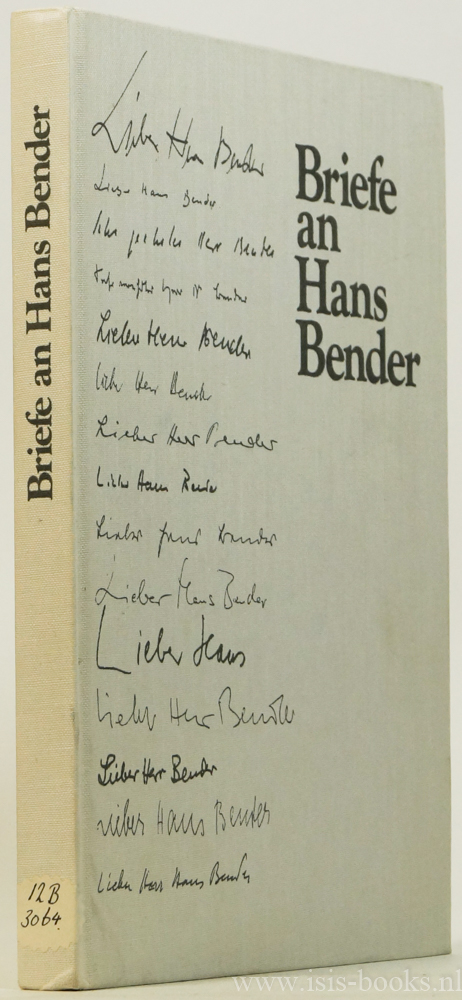 Briefe an Hans Bender
12B
3064
Briefe
an
Hans
Bender
Lieber Herr Bender
Lieber Hans Bender
Sehr geehrter Herr Bender
Lieber Herr Bender
Lieber Herr Bender
Lieber Herr Bender
Lieber Hans Bender
Lieber Bender
Lieber Hans Bender
Lieber Hans
Lieber Herr Bender
Lieber Herr Bender
Lieber Hans Bender
Lieber Herr Hans Bender
www.isis-books.nl